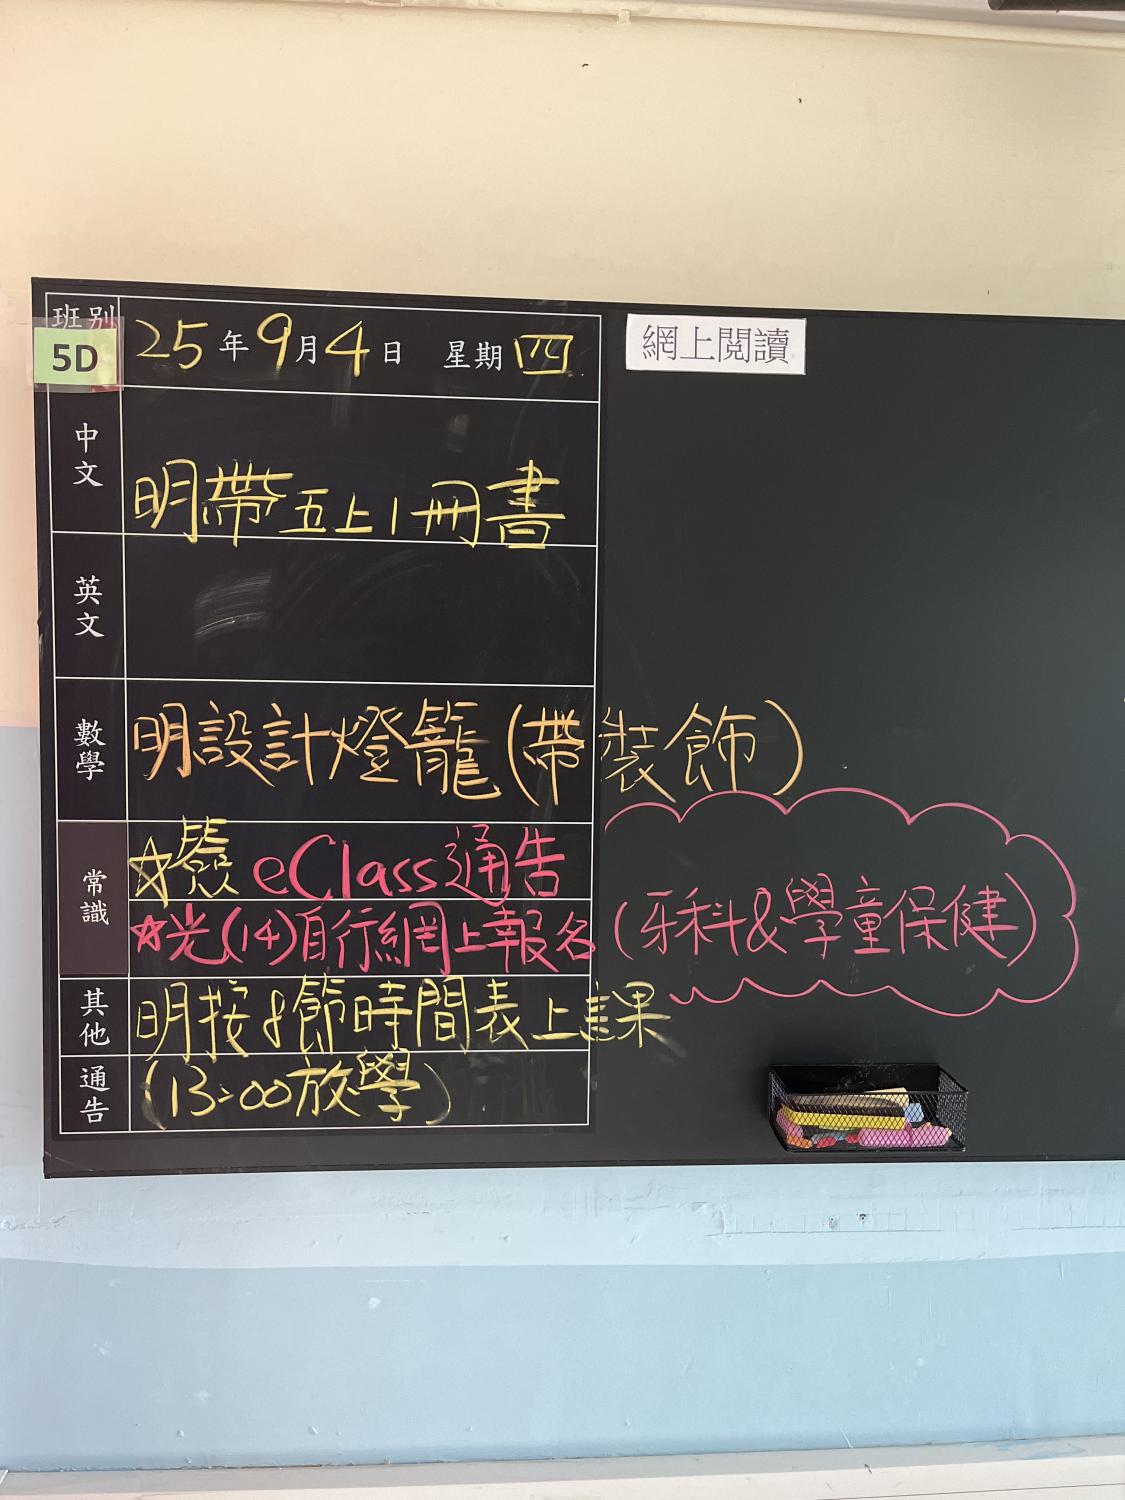 班別
5D
25年9月4日 星期四
網上閱讀
中文
明帶五上1冊書
英文
數學
明設計燈籠(帶裝飾)
常識
☆簽 eClass通告
☆光(14)自行網上報名(牙科&學童保健)
其他
明按8節時間表上課
通告
(13:00放學)